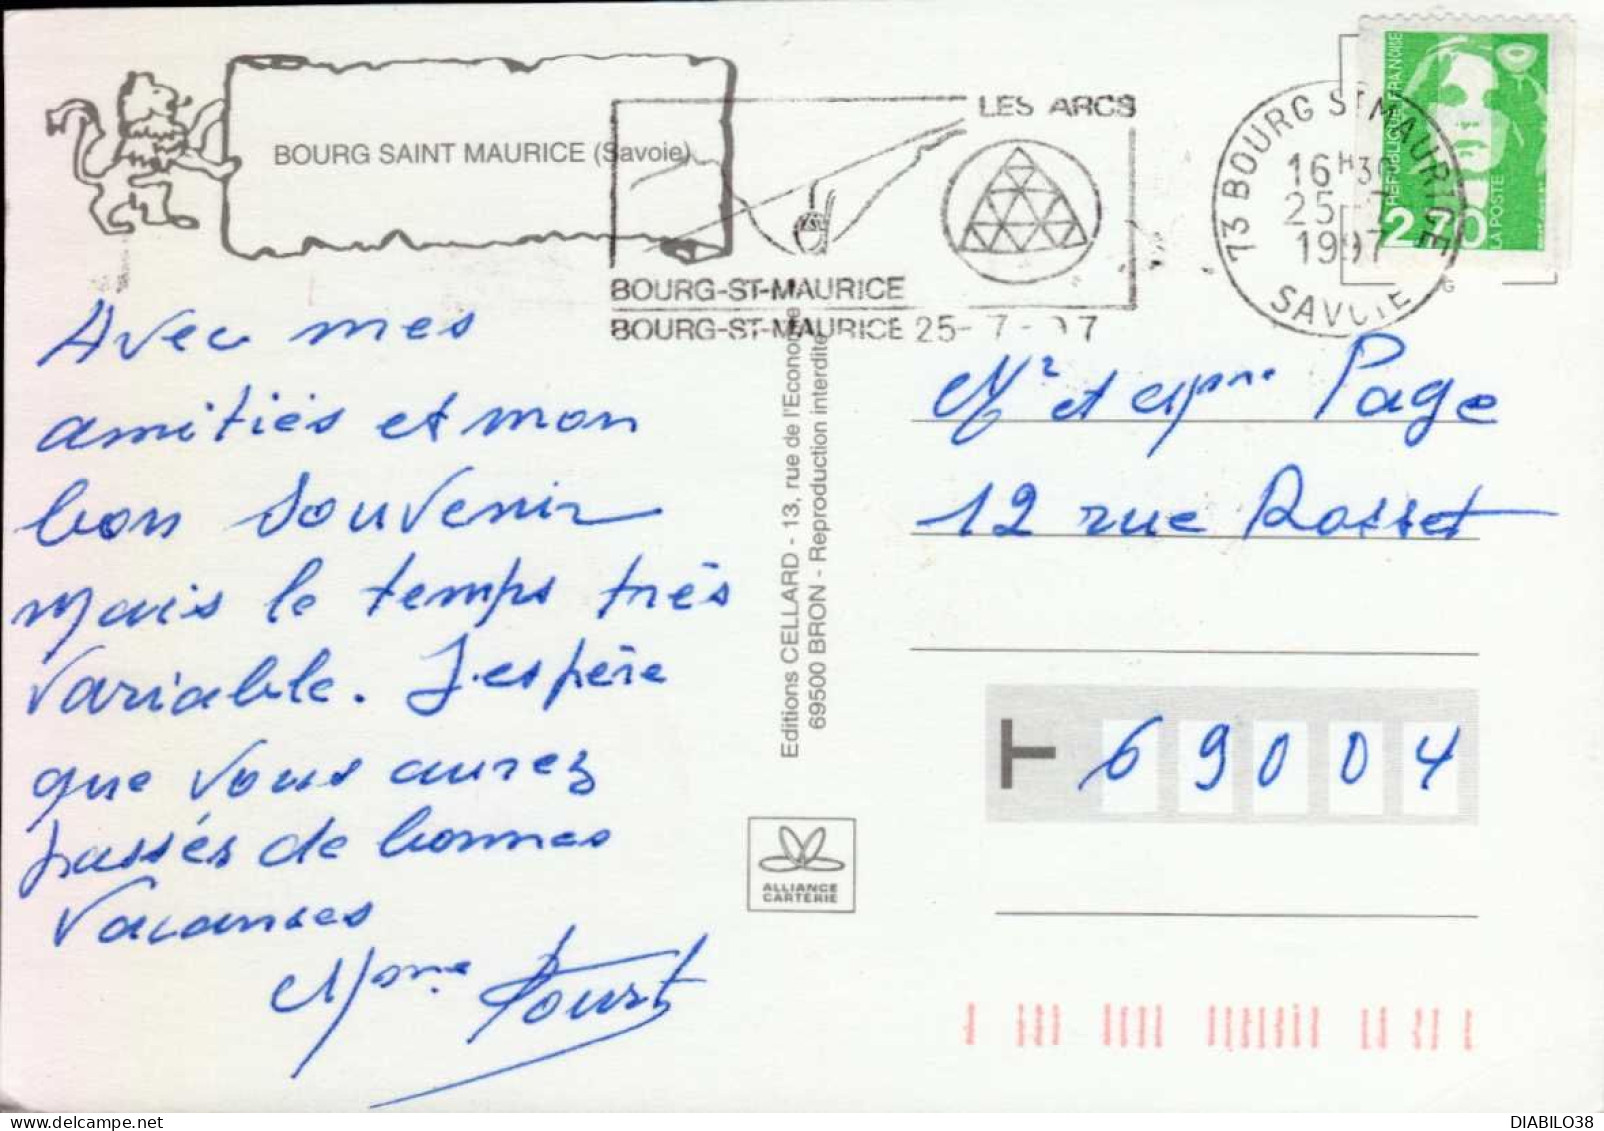 BOURG SAINT MAURICE (Savoie)
LES ARCS
BOURG-ST-MAURICE
BOURG-ST-MAURICE 25-7-97
73 BOURG ST MAURICE
16H30
25-7
1997
SAVOIE
REPUBLIQUE FRANÇAISE
2,70
LA POSTE
Avec mes
amitiés et mon
bon souvenir
mais le temps très
variable. J'espère
que vous aurez
passés de bonnes
vacances
Mme
Editions CELLARD - 13, rue de l'Economie
69500 BRON - Reproduction interdite
ALLIANCE
CARTERIE
Mr et Mme Page
12 rue Rosset
69004
DIABILO38